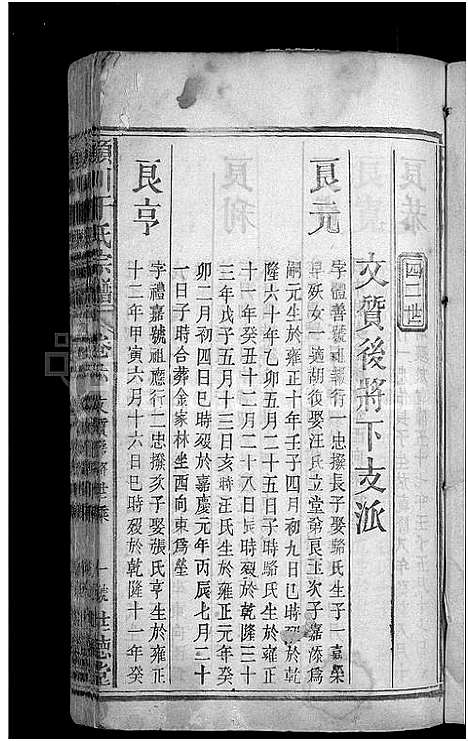 四二世
文質後將下支派
良元
字體善號祖報行一忠撥長子娶駱氏生子一嘉榮
早妖女一適胡後娶汪氏立堂弟良玉次子嘉添爲
嗣元生於雍正十年壬子四月初九日巳時歿於乾
隆六十年乙卯五月二十五日子時駱氏生於雍正
十一年癸丑十二月二十八日辰時歿於乾隆三十
三年戊子五月十三日亥時汪氏生於雍正元年癸
卯二月初四日巳時歿於嘉慶元年丙辰七月二十
一日子時合葬金家林坐西向東爲塋
良亨
字禮嘉號祖應行二忠撥亥子娶張氏亨生於雍正
十二年甲寅六月十六日巳時歿於乾隆十一年癸
川于氏宗譜 卷六 文質 世德堂